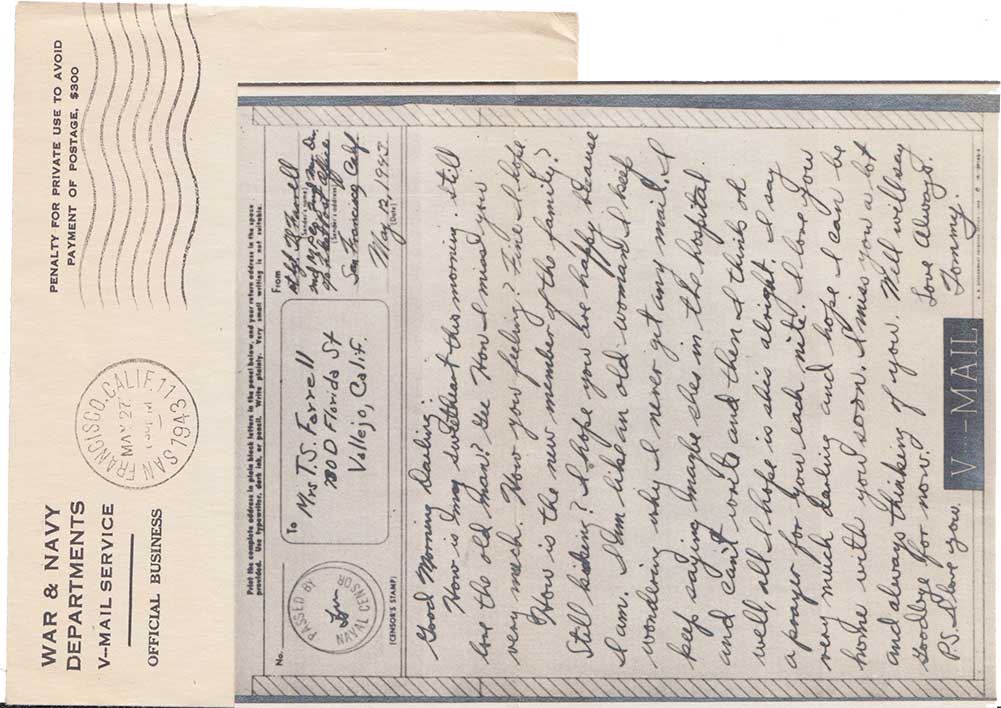 WAR & NAVY
DEPARTMENTS
V-MAIL SERVICE
OFFICIAL BUSINESS
SAN FRANCISCO, CALIF. 11
MAY 27
1943
PENALTY FOR PRIVATE USE TO AVOID
PAYMENT OF POSTAGE, $300
Print the complete address in plain block letters in the panel below, and your return address in the space
provided. Use typewriter, dark ink, or pencil. Write plainly. Very small writing is not suitable.
No.
PASSED BY
NAVAL CENSOR
(CENSOR'S STAMP)
To
Mrs T.S. Farrell
100 D Florida St
Vallejo, Calif.
From
Farrell
(Sender's name)
(Sender's address)
Post Office
San Francisco Calif
May 12, 1943
(Date)
Good Morning Darling:
How is my sweetheart this morning. Still
love the old man? Gee How I miss you
very much. How you feeling? Fine I hope
How is the new member of the family?
Still kicking? I hope you are happy because
I am. I am like an old woman. I keep
wondering why I never get any mail. I
keep saying maybe shes in the hospital
and can't write and then I think oh
well, all I hope is shes alright. I say
a prayer for you each nite. I love you
very much darling and hope I can be
home with you soon. I miss you a lot
and always thinking of you. Well will say
Goodby for now.
Love Always.
P.S. I love you.
Tommy.
V - MAIL